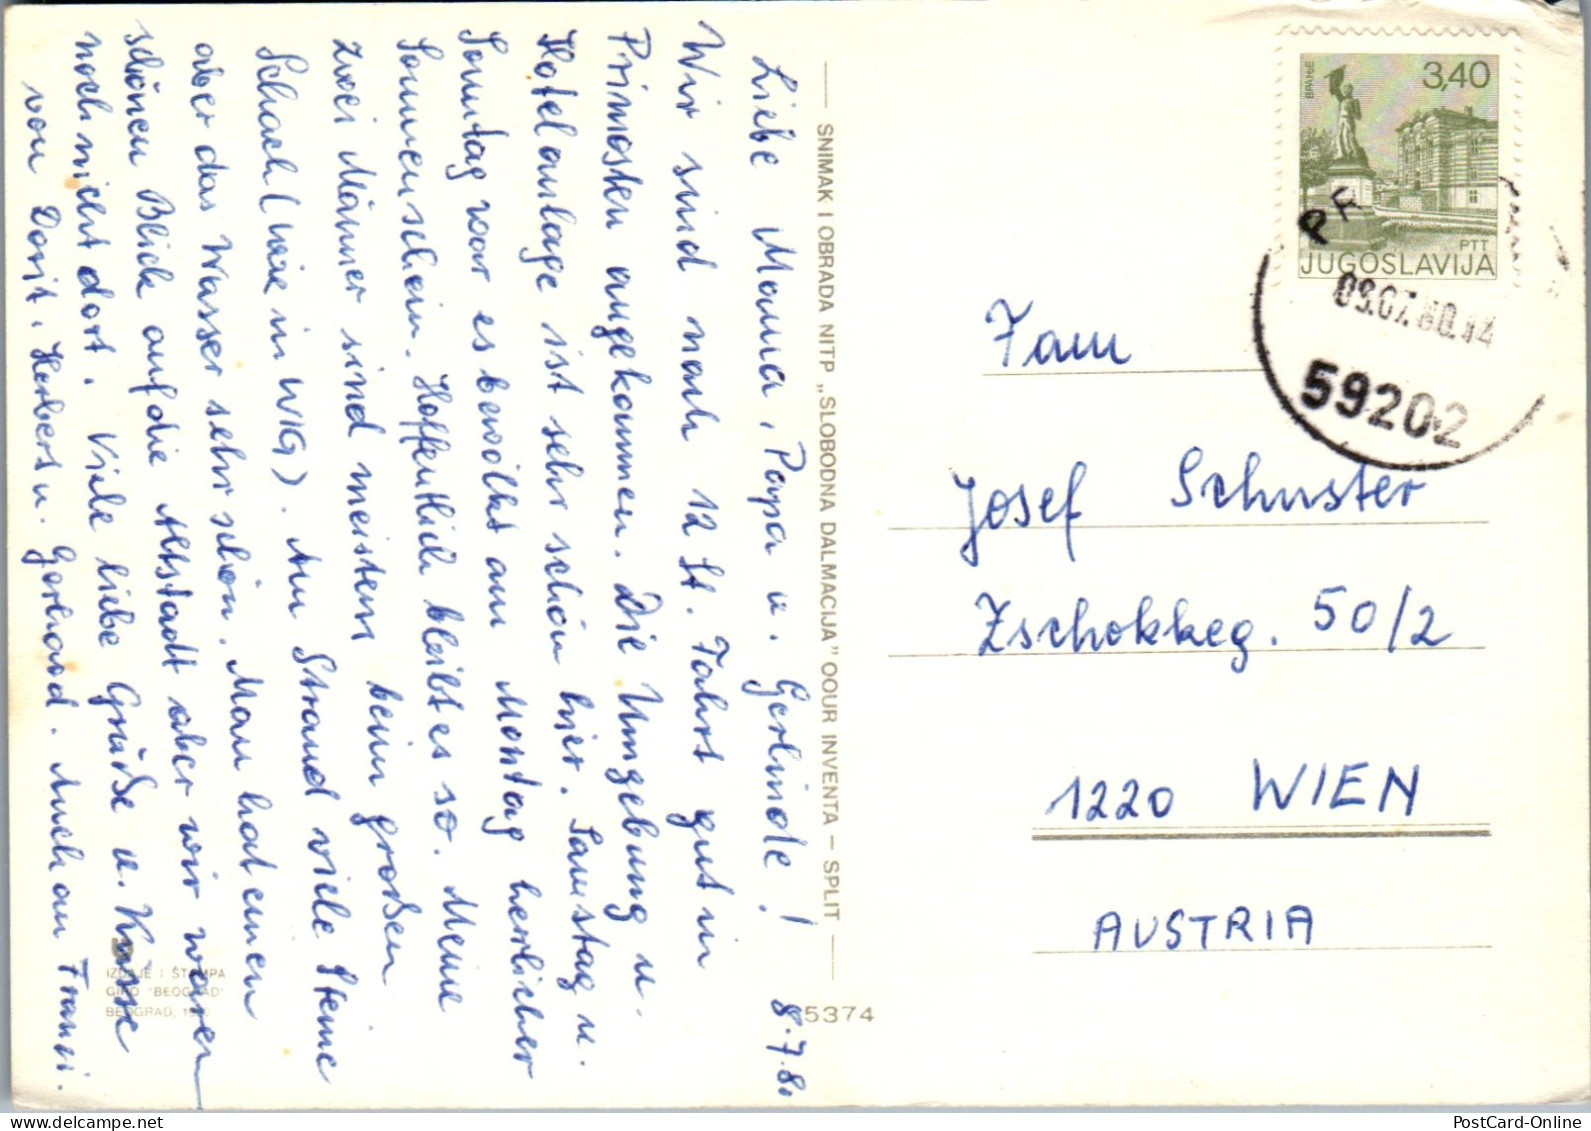 Liebe Mama, Papa u. Gerlinde!
8.7.80
Wir sind nach 12 St. Fahrt gut in
Primosten angekommen. Die Umgebung u.
Hotelanlage ist sehr schön hier. Samstag u.
Sonntag war es bewölkt am Montag herrlicher
Sonnenschein. Hoffentlich bleibt es so. Meine
zwei Männer sind meistens beim großen
Schach (wie in WIG). Am Strand viele Steine
aber das Wasser sehr schön. Man hat einen
schönen Blick auf die Altstadt aber wir waren
noch nicht dort. Viele liebe Grüße u. Küsse
von Dorit, Herbert u. Gerhard. Auch an Franzi.
SNIMAK I OBRADA NITP „SLOBODNA DALMACIJA" OOUR INVENTA – SPLIT
IZDAJE I ŠTAMPA
GIRO "BEOGRAD"
BEOGRAD,
5374
ВРАЊЕ
3,40
PTT
JUGOSLAVIJA
PR
09.07.80.14
59202
Fam
Josef Schuster
Zschokkeg. 50/2
1220 WIEN
AUSTRIA
PostCard-Online